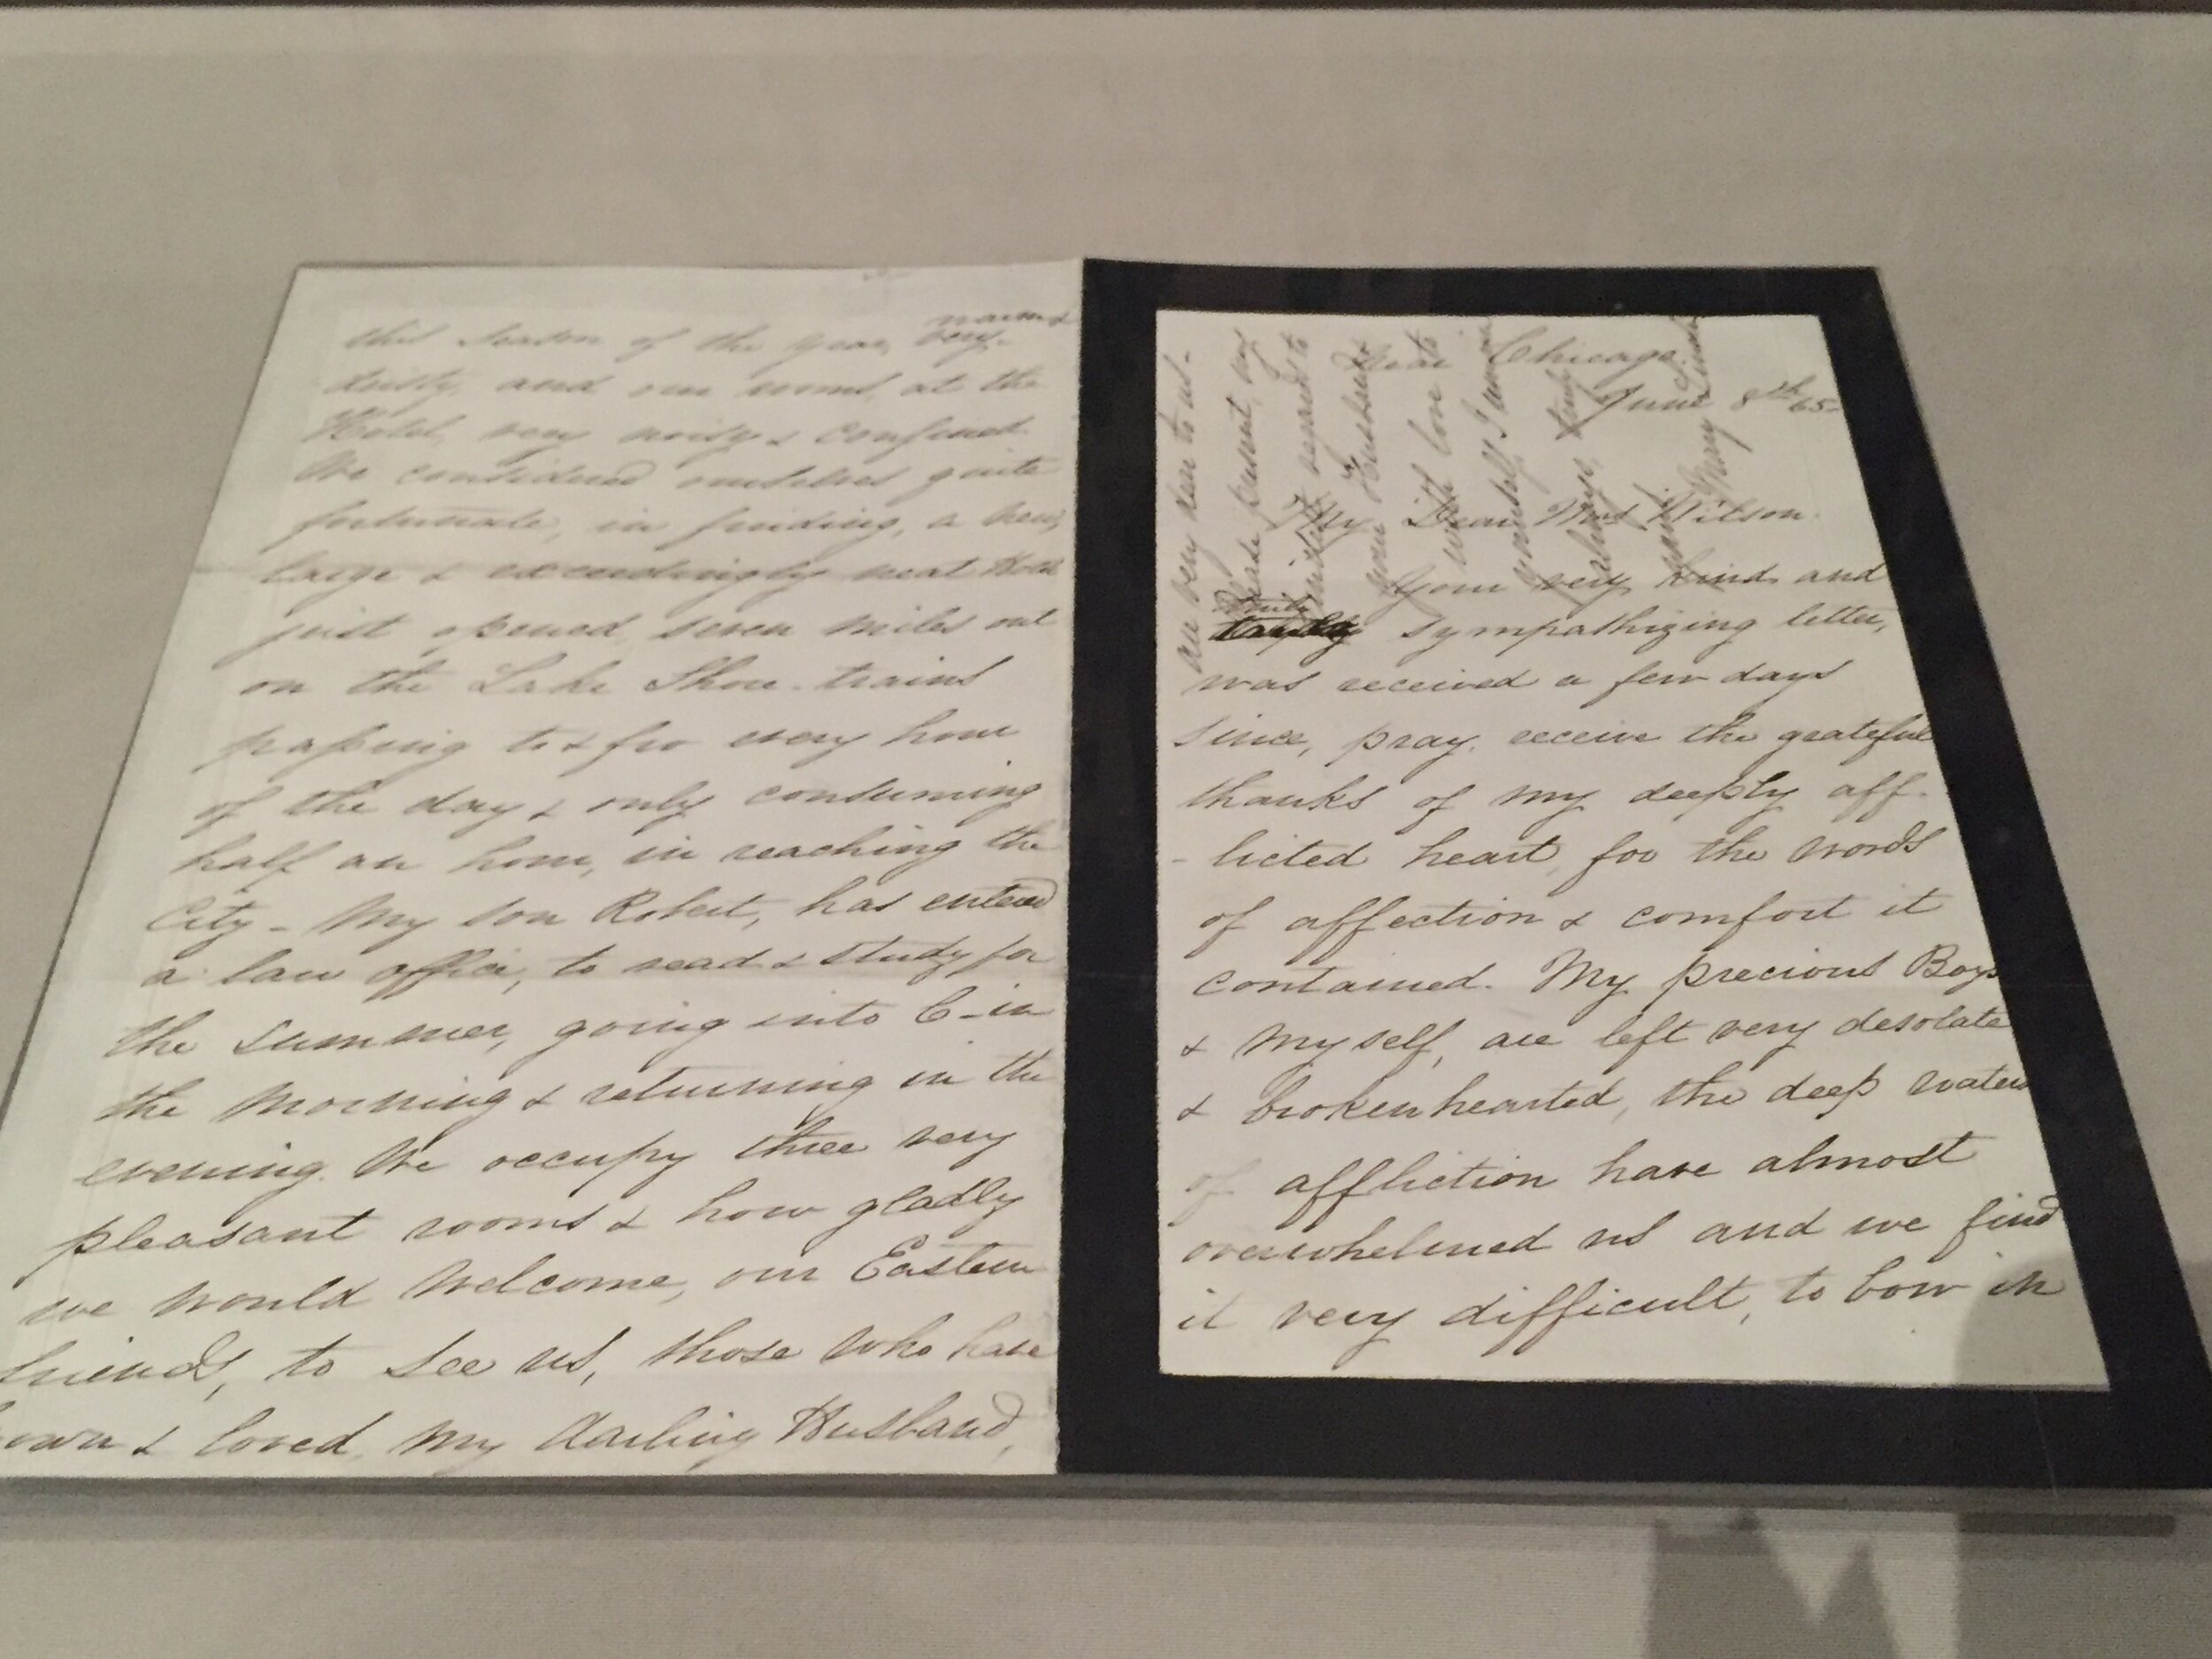 this season of the year, very
warm &
dusty, and our rooms, at the
Hotel, very noisy & confined.
We considered ourselves quite
fortunate, in finding, a new,
large & exceedingly neat Hotel
just opened, seven miles out
on the Lake Shore - trains
passing to & fro every hour
of the day & only consuming
half an hour, in reaching the
City - My son Robert, has entered
a law office, to read & study for
the summer, going into C - in
the morning & returning in the
evening. We occupy three very
pleasant rooms & how gladly
we would welcome, our Eastern
friends, to see us, those who have
& loved, my darling Husband,
Near Chicago.
June 8th 65-
My Dear Mrs Wilson.
Your very kind and
truly sympathizing letter,
was received a few days
since, pray, receive the grateful
thanks of my deeply aff-
-licted heart, for the words
of affection & comfort it
contained. My precious Boys
& myself, are left very desolate
& brokenhearted, the deep waters
of affliction have almost
overwhelmed us and we find
it very difficult, to bow in
are very dear to us -
Please present, my
regards to
your Husband
With love to
yourself, I remain
always, truly
Mary Lincoln